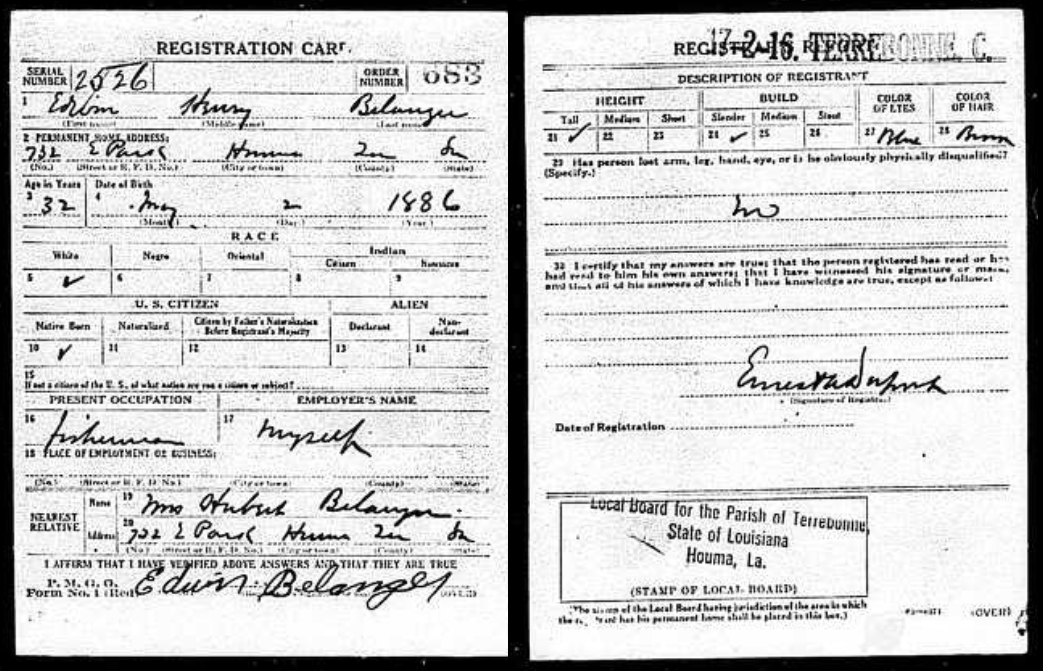 REGISTRATION CARD
SERIAL NUMBER 2526 ORDER NUMBER 683
1 Edwin Henry Belanger
(First name) (Middle name) (Last name)
2 PERMANENT HOME ADDRESS:
732 E Park Houma La
(No.) (Street or R. F. D. No.) (City or town) (County) (State)
Age in Years Date of Birth
3 32 4 May 2 1886
(Month) (Day) (Year)
RACE
White Negro Oriental Indian
Citizen Noncitizen
5 ✓ 6 7 8 9
U. S. CITIZEN ALIEN
Native Born Naturalized Citizen by Father's Naturalization Before Registrant's Majority Declarant Non-declarant
10 ✓ 11 12 13 14
15
If not a citizen of the U. S., of what nation are you a citizen or subject?
PRESENT OCCUPATION EMPLOYER'S NAME
16 fisherman 17 Myself
18 PLACE OF EMPLOYMENT OR BUSINESS:
(No.) (Street or R. F. D. No.) (City or town) (County) (State)
NEAREST RELATIVE
Name 19 Mrs Hubert Belanger
Address 20 732 E Park Houma La
(No.) (Street or R. F. D. No.) (City or town) (County) (State)
I AFFIRM THAT I HAVE VERIFIED ABOVE ANSWERS AND THAT THEY ARE TRUE
P. M. G. O.
Form No. 1 (Red) Edwin Belanger (OVER)
17-2-16. TERREBONNE, C.
REGISTRAR'S REPORT
DESCRIPTION OF REGISTRANT
HEIGHT BUILD COLOR OF EYES COLOR OF HAIR
Tall Medium Short Slender Medium Stout
21 ✓ 22 23 24 ✓ 25 26 27 Blue 28 Brown
29 Has person lost arm, leg, hand, eye, or is he obviously physically disqualified?
(Specify.)
no
30 I certify that my answers are true; that the person registered has read or has
had read to him his own answers; that I have witnessed his signature or mark,
and that all of his answers of which I have knowledge are true, except as follows:
(Signature of Registrar)
Date of Registration
Local Board for the Parish of Terrebonne,
State of Louisiana
Houma, La.
(STAMP OF LOCAL BOARD)
(The stamp of the Local Board having jurisdiction of the area in which
the registrant has his permanent home shall be placed in this box.)
(OVER)